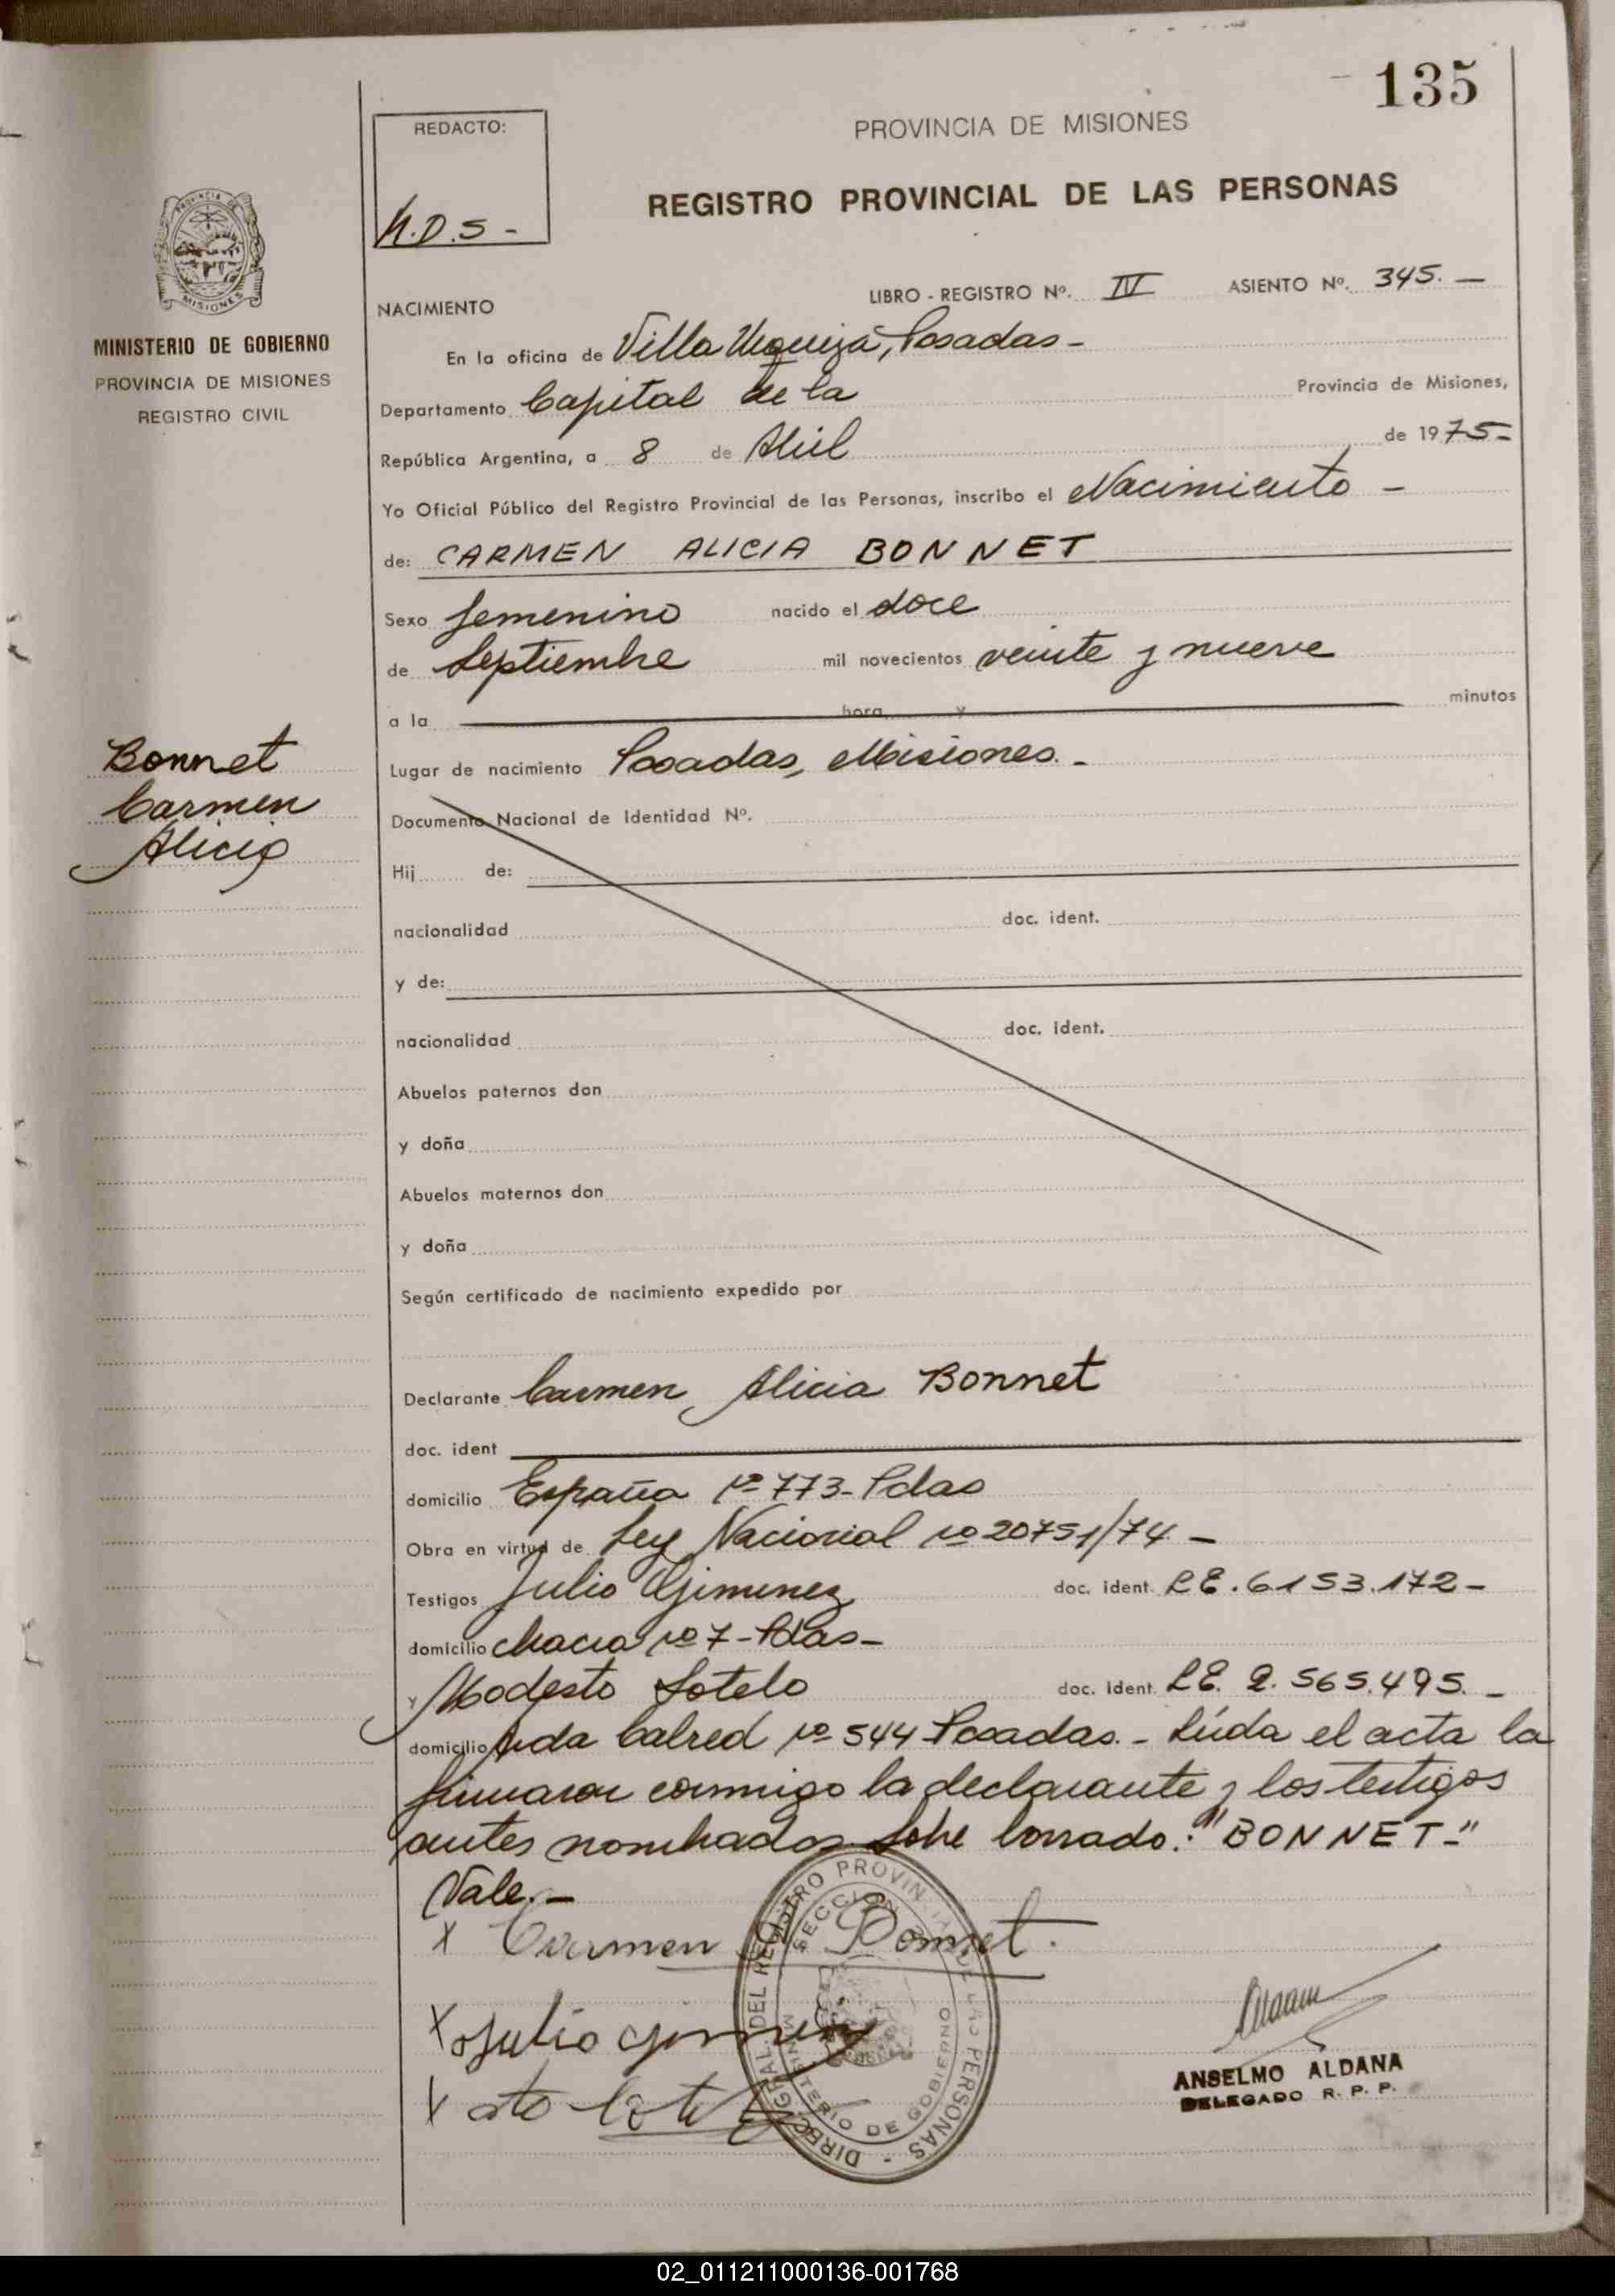 135
REDACTO:
PROVINCIA DE MISIONES
REGISTRO PROVINCIAL DE LAS PERSONAS
PROVINCIA DE
MISIONES
MINISTERIO DE GOBIERNO
PROVINCIA DE MISIONES
REGISTRO CIVIL
NACIMIENTO
LIBRO - REGISTRO Nº. IV ASIENTO Nº. 345. —
En la oficina de Villa Urquiza, Posadas -
Departamento Capital de la Provincia de Misiones,
República Argentina, a 8 de Abril de 1975 -
Yo Oficial Público del Registro Provincial de las Personas, inscribo el Nacimiento -
de: CARMEN ALICIA BONNET
Sexo femenino nacido el doce
de Septiembre mil novecientos veinte y nueve
a la hora y minutos
Bonnet
Carmen
Alicia
Lugar de nacimiento Posadas, Misiones. -
Documento Nacional de Identidad Nº.
Hij de:
nacionalidad doc. ident.
y de:
nacionalidad doc. ident.
Abuelos paternos don
y doña
Abuelos maternos don
y doña
Según certificado de nacimiento expedido por
Declarante Carmen Alicia Bonnet
doc. ident
domicilio España Nº 773 - Pdas
Obra en virtud de Ley Nacional Nº 20751/74. -
Testigos Julio Gimenez doc. ident. LE. 6153.172 -
domicilio Chacra Nº 7 - Pdas -
y Modesto Sotelo doc. ident. LE. 2.565.495. -
domicilio Avda Nº 544 Posadas. - Leída el acta la
firmaron conmigo la declarante y los testigos
antes nombrados. Sobre borrado: "BONNET -"
Vale. -
X Carmen Bonnet.
X Julio Gimenez
X
DIREC. GRAL. DEL REGISTRO PROVINCIAL DE LAS PERSONAS -
SECCION
MINISTERIO DE GOBIERNO
ANSELMO ALDANA
DELEGADO R. P. P.
02_011211000136-001768